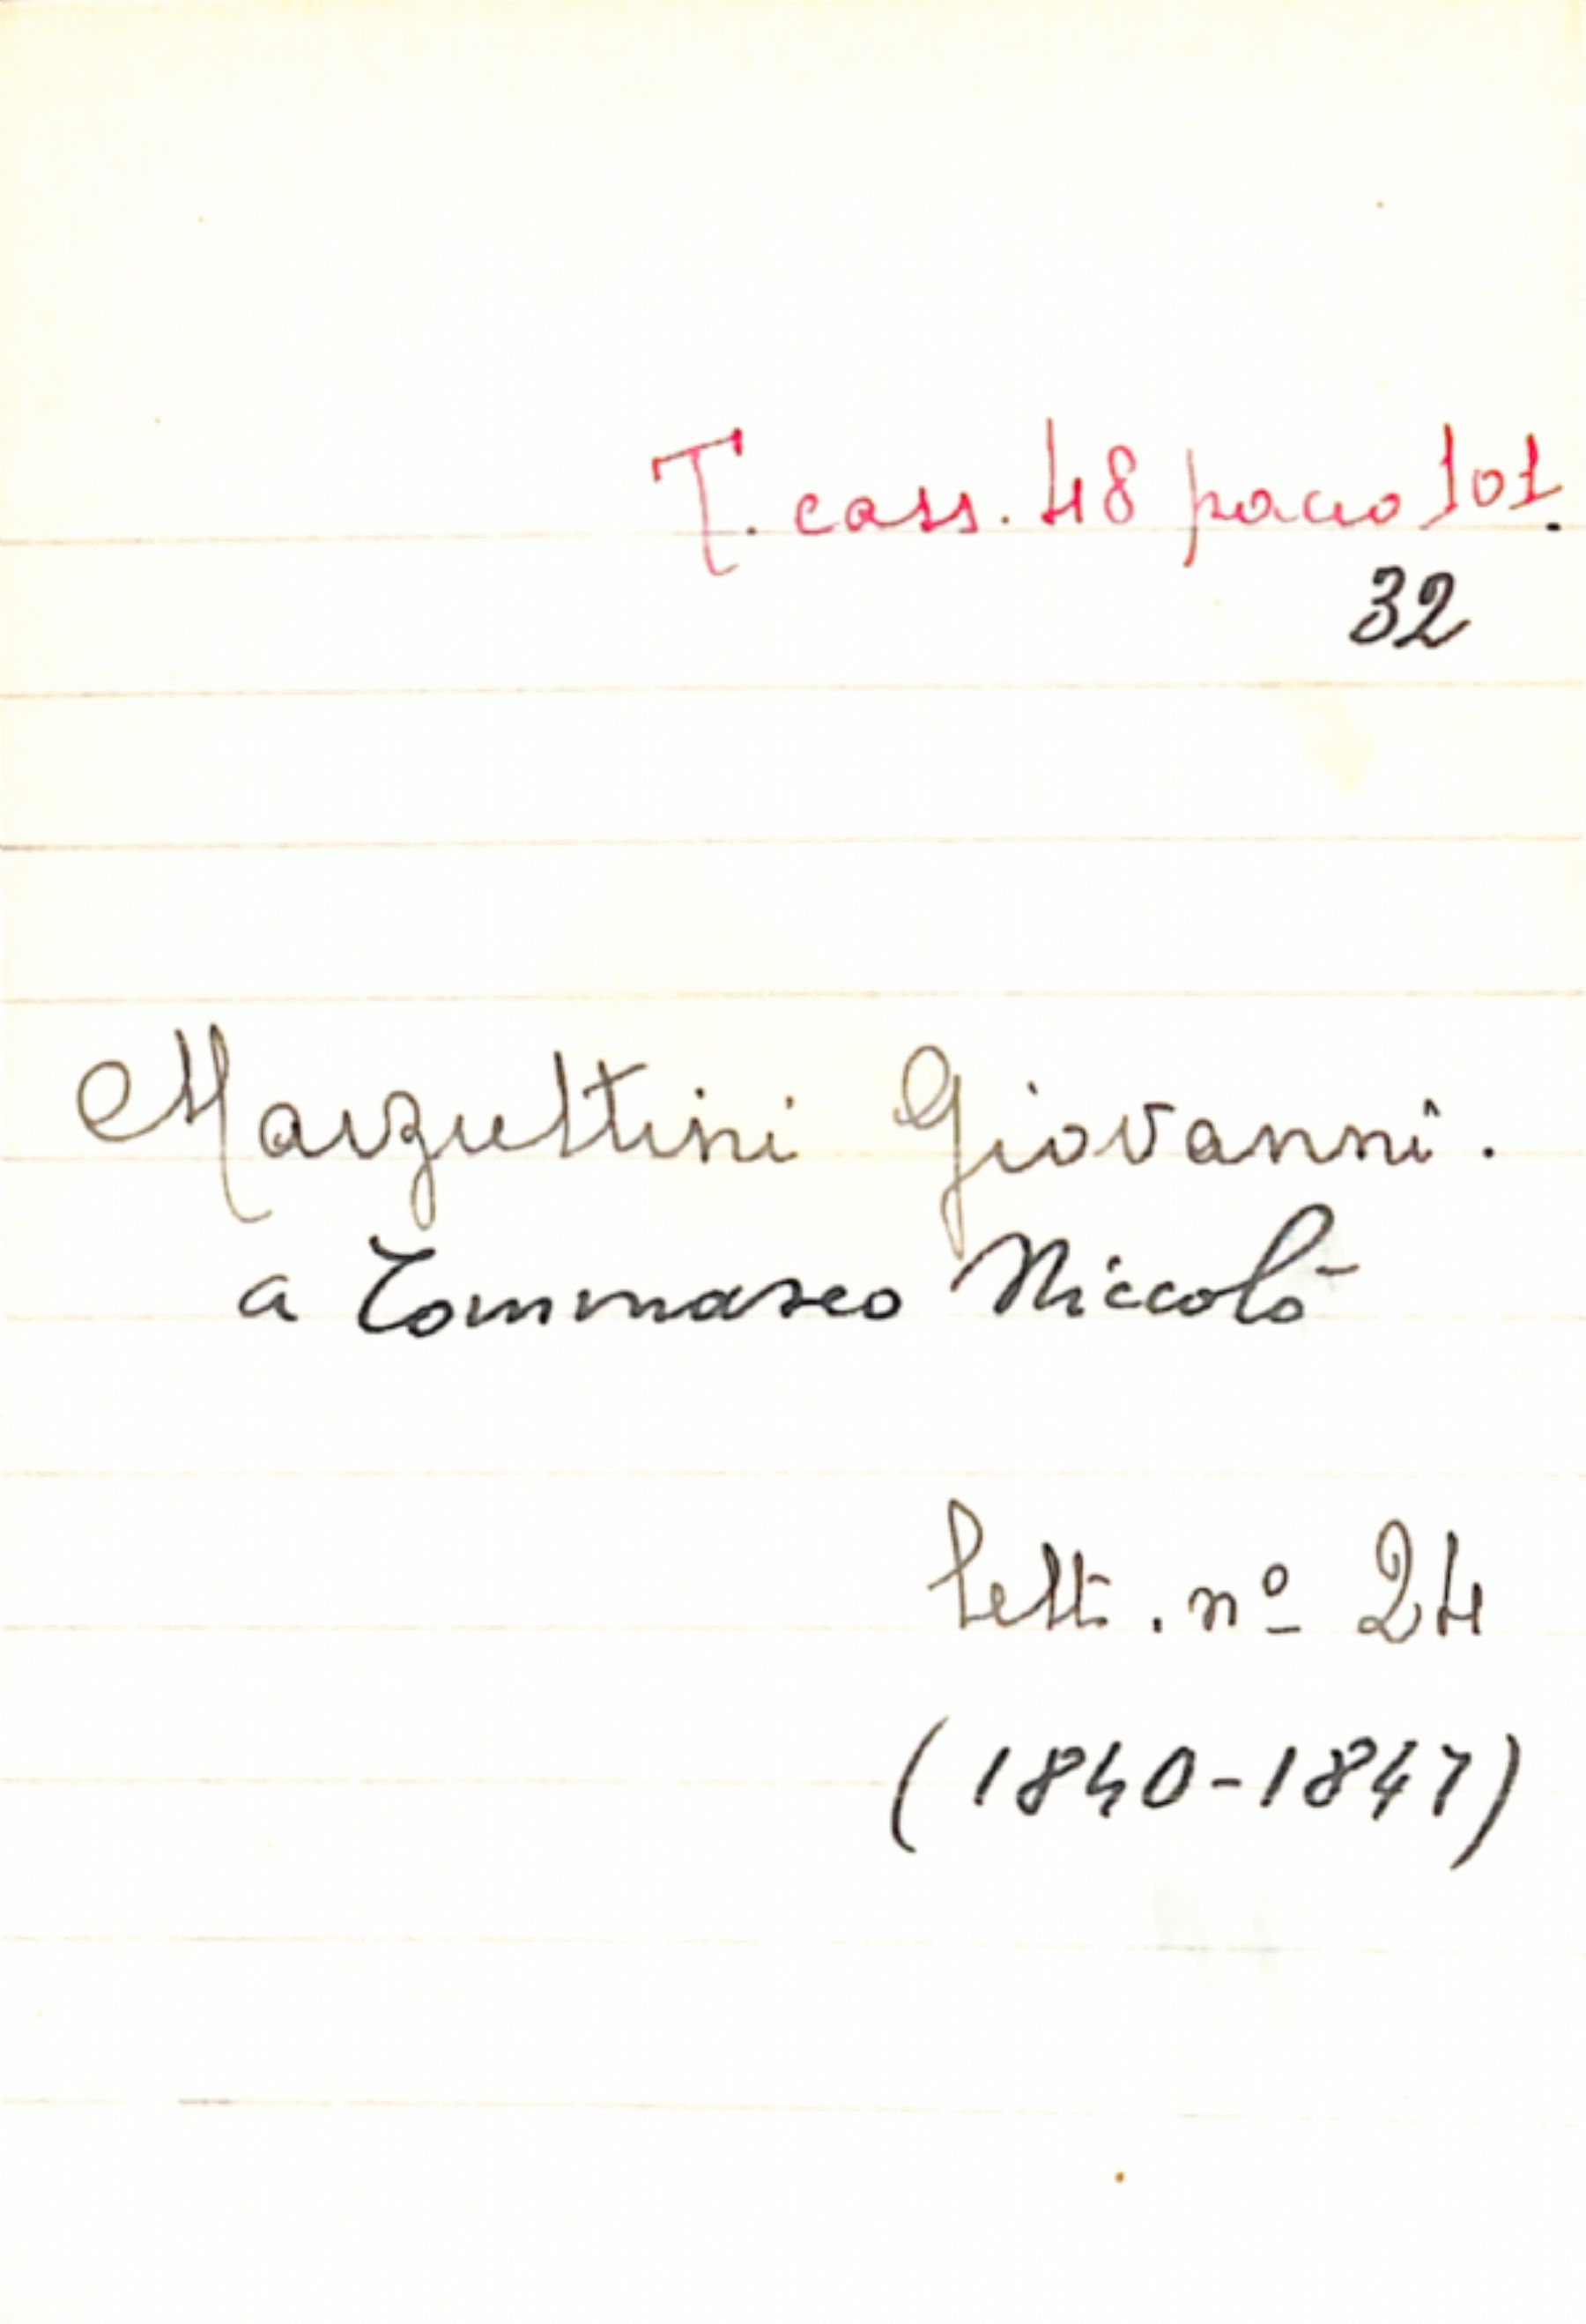 T. cass. 48 pacco 101.
32
Marzuttini Giovanni.
a Tommaseo Niccolò
lett. nº 24
(1840-1847)